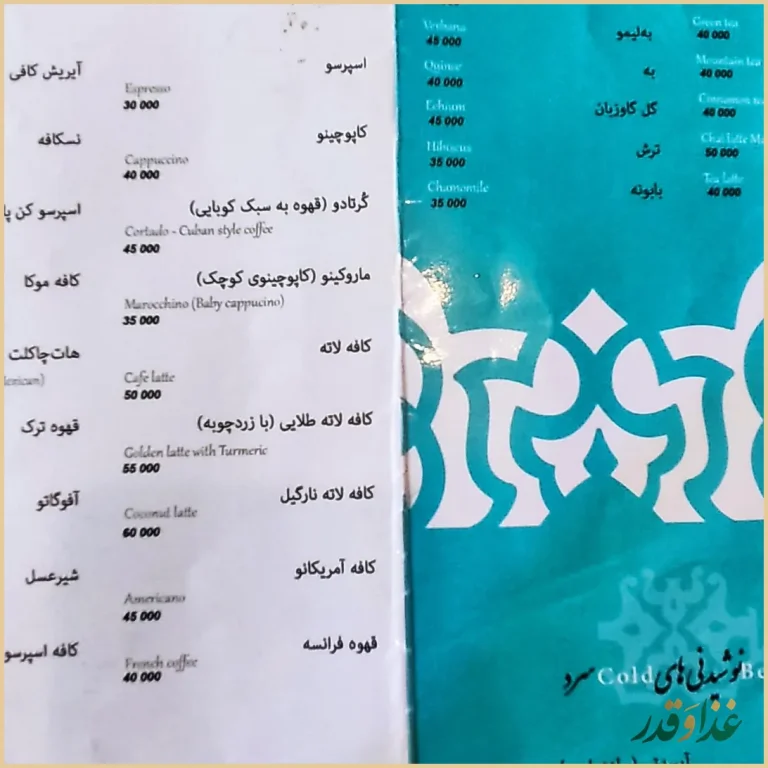 اسپرسو
Espresso
30 000
کاپوچینو
Cappuccino
40 000
کُرتادو (قهوه به سبک کوبایی)
Cortado - Cuban style coffee
45 000
ماروکینو (کاپوچینوی کوچک)
Marocchino (Baby cappucino)
35 000
کافه لاته
Cafe latte
50 000
کافه لاته طلایی (با زردچوبه)
Golden latte with Turmeric
55 000
کافه لاته نارگیل
Coconut latte
60 000
کافه آمریکانو
Americano
45 000
قهوه فرانسه
French coffee
40 000
آیریش کافی
نسکافه
اسپرسو کن پا
کافه موکا
هات‌چاکلت
قهوه ترک
آفوگاتو
شیرعسل
کافه اسپرسو
Green tea
40 000
Mountain tea
40 000
Cinnamon tea
40 000
Chai latte
50 000
Tea latte
40 000
به‌لیمو
Verbana
45 000
به
Quince
40 000
گل گاوزبان
Echium
45 000
ترش
Hibiscus
35 000
بابونه
Chamomile
35 000
نوشیدنی های سرد
Cold Be
غذا و قدر